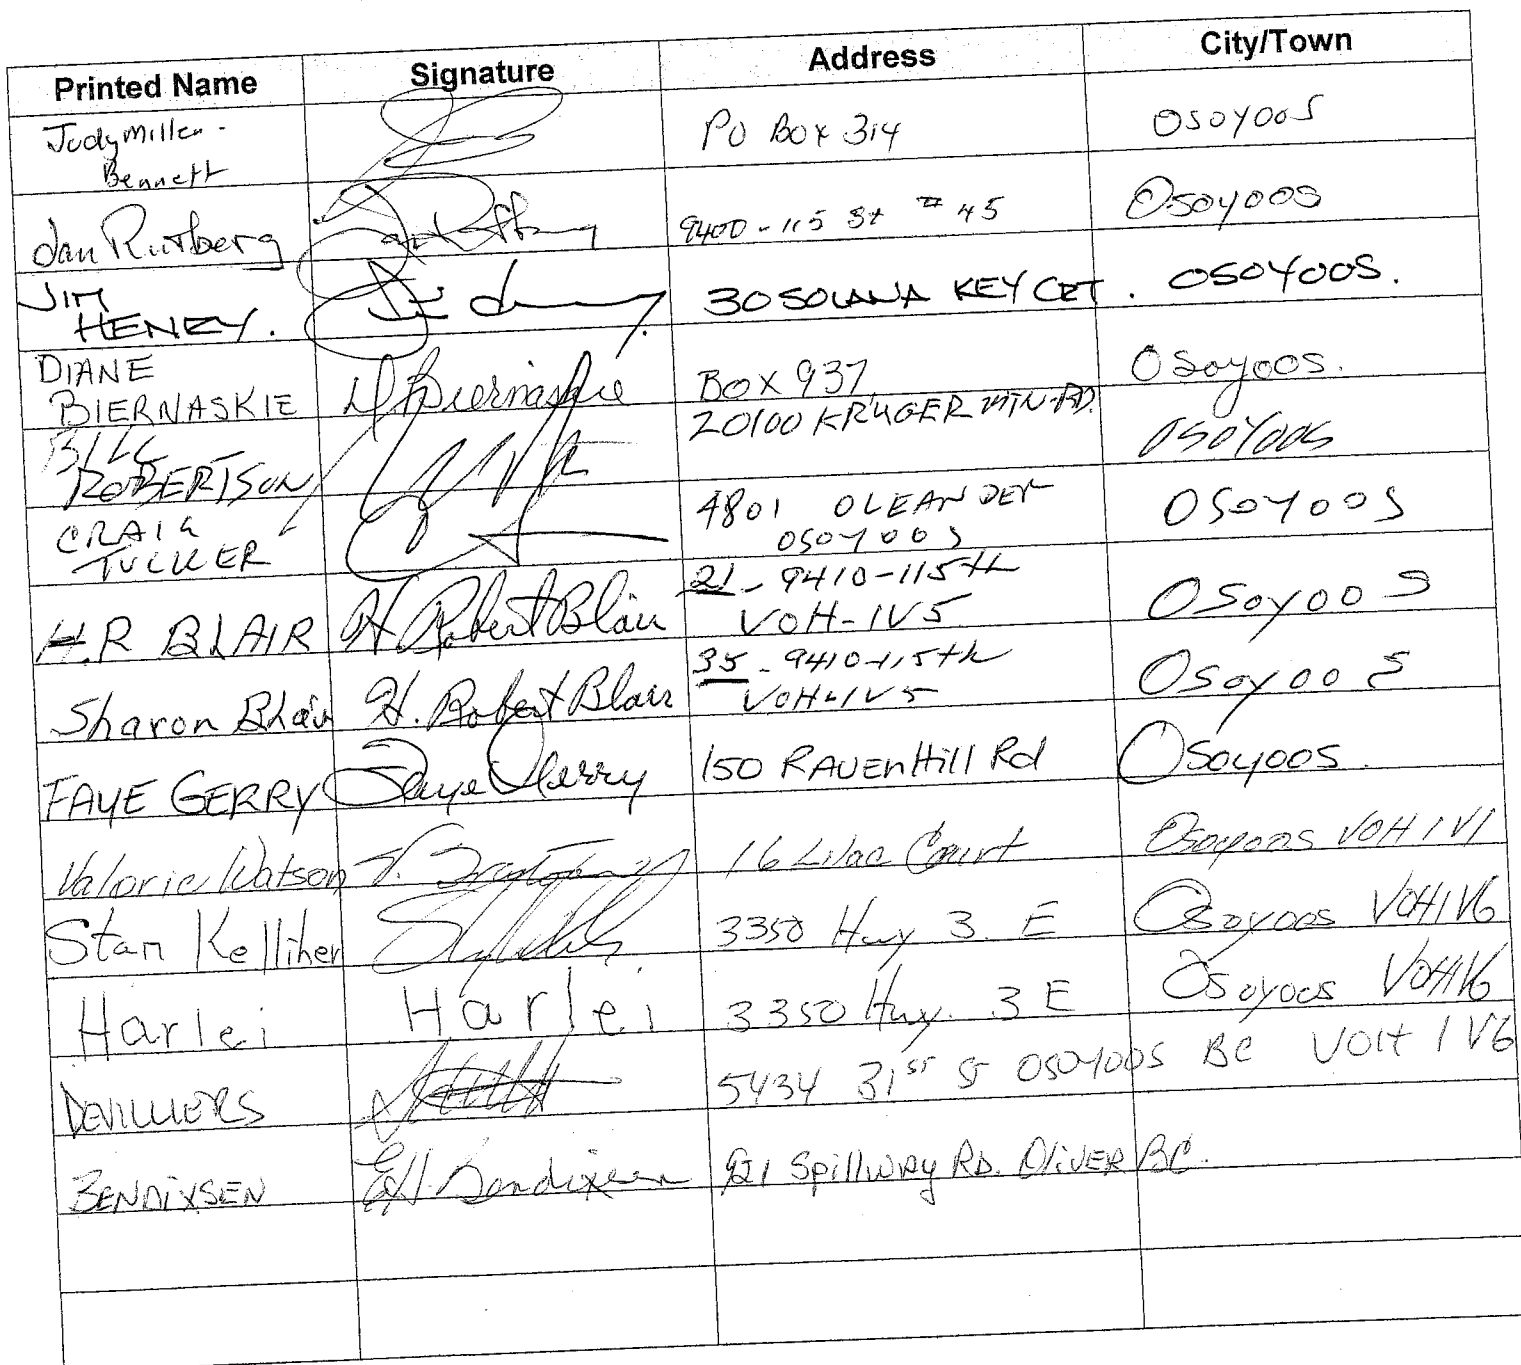 Printed Name Signature Address City/Town
Judy Miller- PO Box 314 OSOYOOS
Bennett
Jan Rutberg 9400-115 St #45 Osoyoos
JIM
HENEY. 30 SOLANA KEY CRT. OSOYOOS.
DIANE
BIERNASKIE D Biernaskie BOX 937 Osoyoos.
BILL 20100 KRUGER MTN RD. OSOYOOS
ROBERTSON
CRAIG 4801 OLEANDER OSOYOOS
TUCKER OSOYOOS
21-9410-115th
H.R BLAIR H Robert Blair V0H-1V5 OSoyooS
35-9410-115th
Sharon Blair H. Robert Blair V0H-1V5 OsoyooS
FAYE GERRY Faye Gerry 150 RAVENHill Rd Osoyoos.
Valorie Watson 16 Lilac Court Osoyoos V0H 1V1
Stan Kelliher 3350 Hwy 3. E Osoyoos V0H1V6
Harlei Harlei 3350 Hwy. 3 E Osoyoos V0H1V6
DEVILLIERS 5434 31ST ST OSOYOOS BC V0H 1V6
BENDIXSEN EH Bendixsen 921 Spillway RD. OLIVER BC.